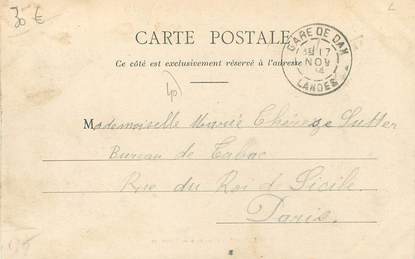 30 €
CARTE POSTALE
Ce côté est exclusivement réservé à l'adresse
GARE DE DAX
17
NOV
LANDES
40
Mademoiselle Marie Thérèse Sutter
Bureau de Tabac
Rue du Roi de Sicile
Paris.